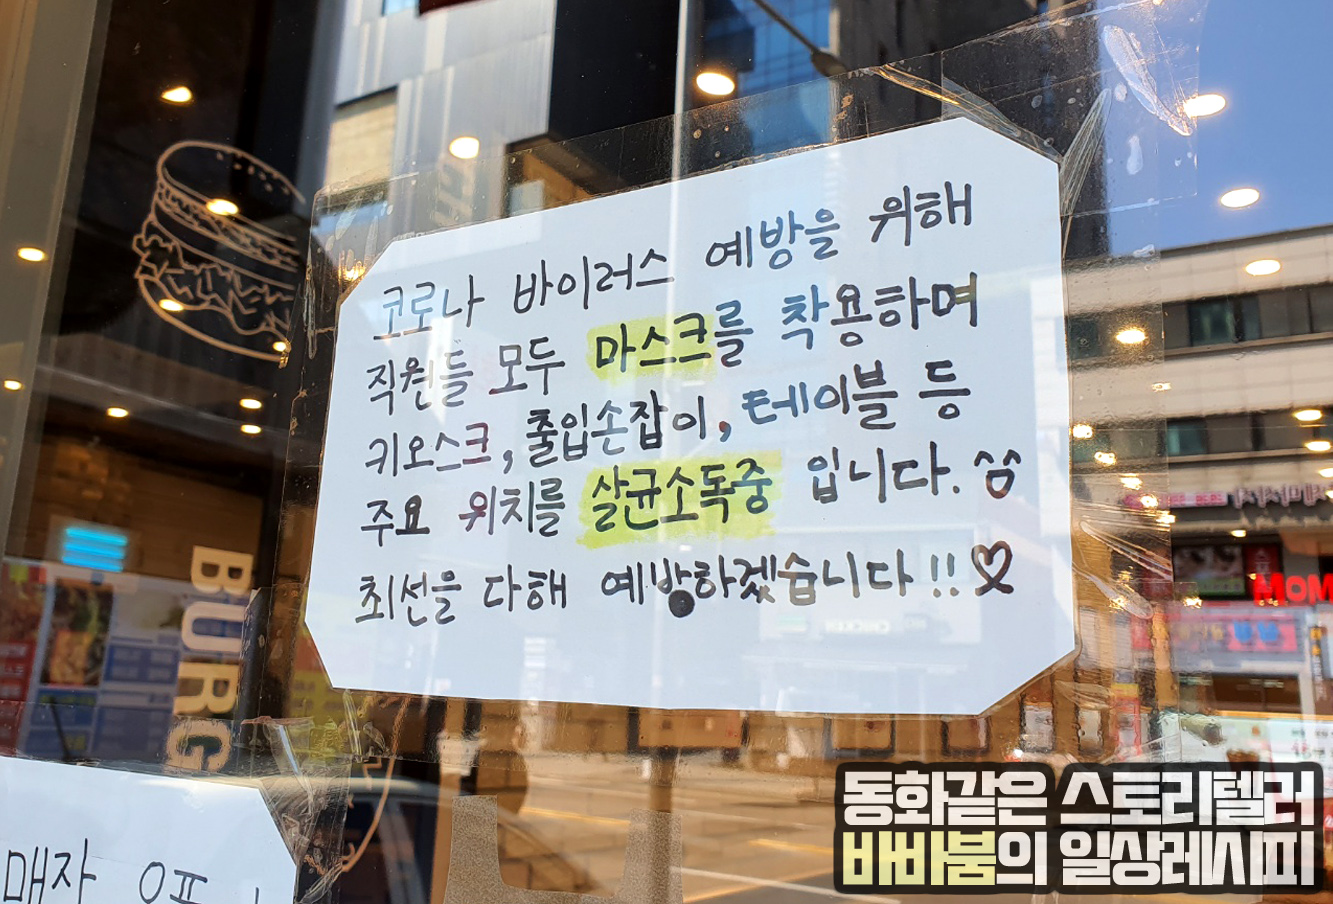 코로나 바이러스 예방을 위해
직원들 모두 마스크를 착용하며
키오스크, 출입손잡이, 테이블 등
주요 위치를 살균소독중 입니다. ^^
최선을 다해 예방하겠습니다!! ♡
BURG
CHICKEN
MOM
매장
동화같은 스토리텔러
바바붐의 일상레시피